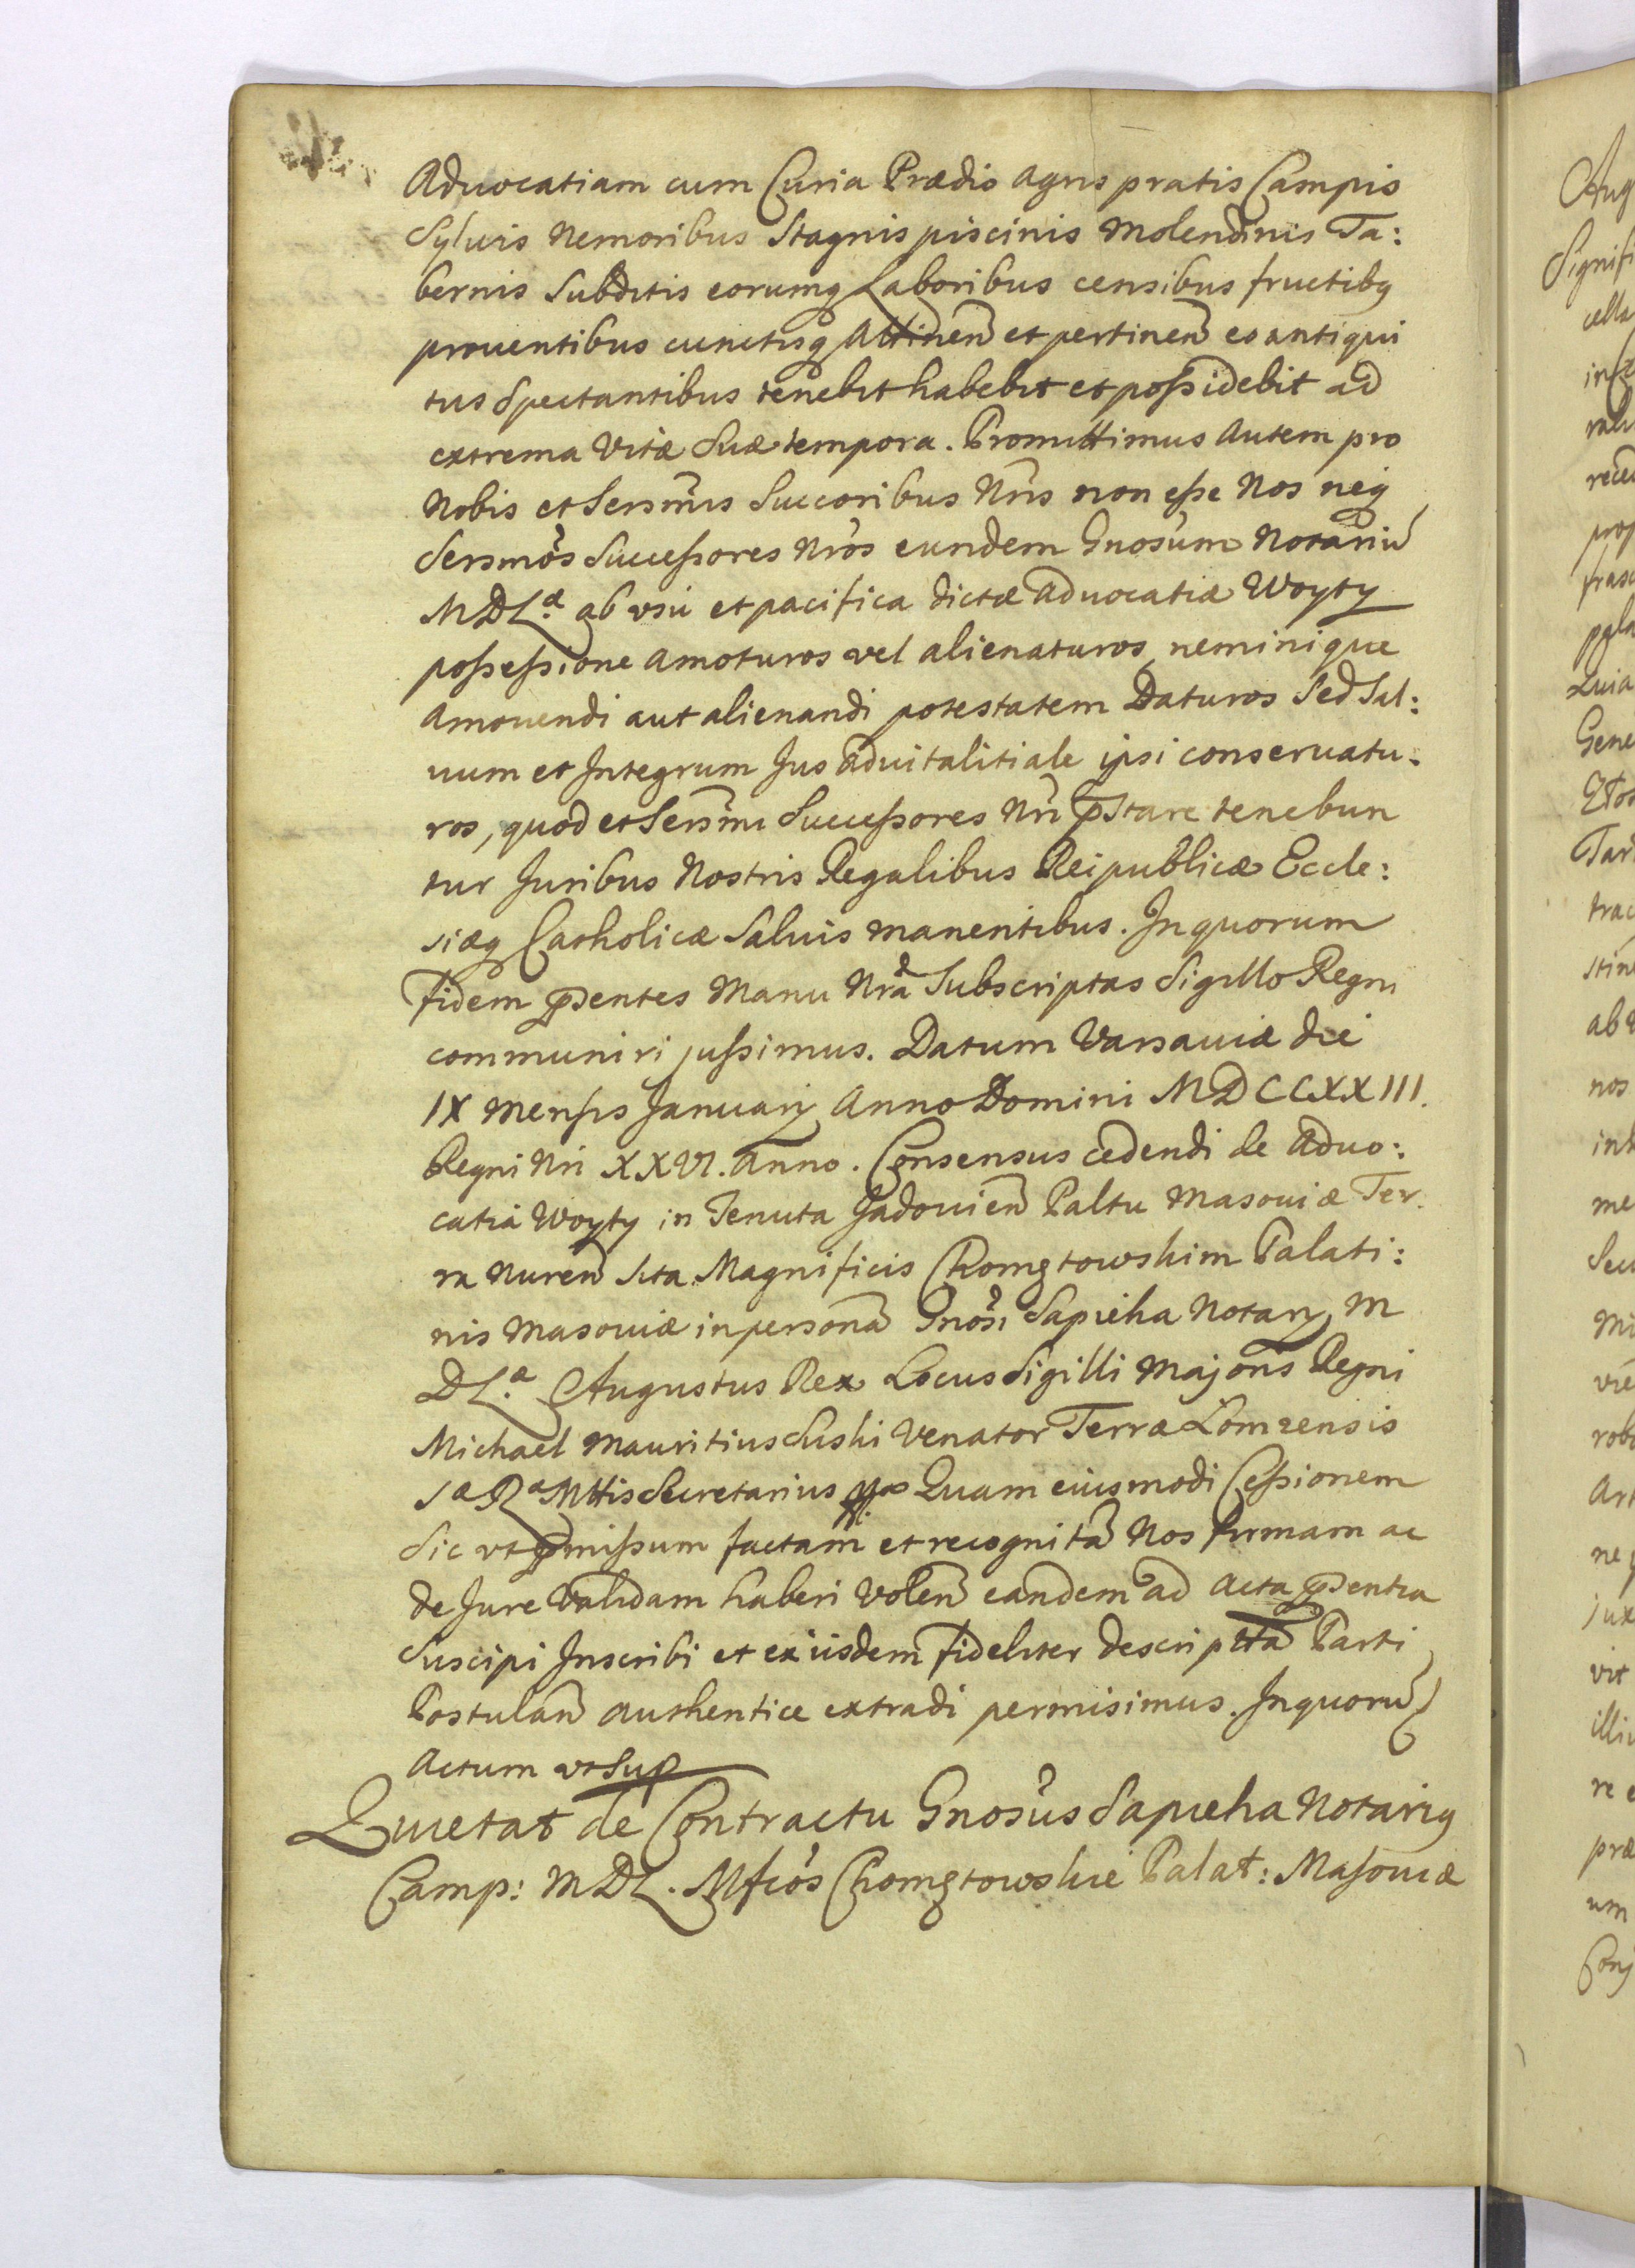 Aduocatiam cum Curia Prædio Agris pratis Campis
Syluis Nemoribus Stagnis piscinis Molendinis Ta:
bernis Subditis eorumq Laboribus censibus fructibq
prouentibus cunctisq Attinen̄ et pertinen̄ eo antiqui
tus Spectantibus tenebit habebit et poſsidebit ad
extrema Vitæ Suæ tempora. Promittimus Autem pro
Nobis et Sersm̄is Succoribus Nr̄is non eſse Nos neq
Sersmōs Succeſsores Nrōs eundem Gnosūm Notariū
MDLæ ab vsu et pacifica dictæ Aduocatiæ Woyty
poſseſsione Amoturos vel alienaturos, neminique
Amouendi aut alienandi potestatem Daturos Sed Sal:
uum et Integrum Jus Aduitalitiale ipsi conseruatu:
ros, quod et Sersm̄i Succeſsores Nr̄i p̄stare tenebun
tur Juribus Nostris Regalibus Reipublicæ Eccle:
siæq Catholicæ Saluis manentibus. In quorum
Fidem p̄sentes Manu Nrā Subscriptas Sigillo Regni
communiri juſsimus. Datum Varsauiæ die
IX Menſis Januarij Anno Domini MDCCXXIII.
Regni Nri XXVI. Anno. Consensus cedendi de Aduo:
catia Woyty in Tenuta Jadouien̄ Paltu Masouiæ Ter.
ra Nuren̄ Sita Magnificis Chomętowskim Palati:
nis Masouiæ in personā Gnōsi Sapieha Notarij M
DLæ Augustus Rex Locus Sigilli Majoris Regni
Michael Mauritius Suski Venator Terræ Lomzensis
Sæ Ræ Mttis Secretarius mpp Quam eiusmodi Ceſsionem
Sic vt p̄miſsum factam et recognitā Nos firmam ac
de Jure Validam haberi Volen̄ eandem ad Acta p̄sentia
Suscipi Inscribi et ex iisdem fideliter descriptā Parti
Postulan̄ authentice extradi permisimus. In quorū
Actum vt Sup
Quietat de Contractu Gnosūs Sapieha Notariq
Camp: MDL. Mfcōs Chomętowskie Palat: Maſouiæ